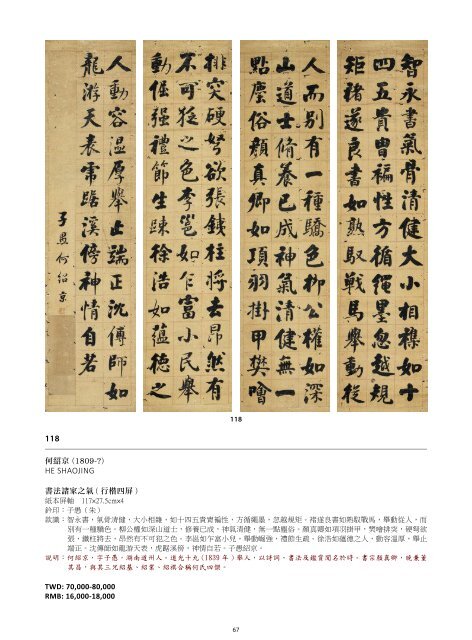 智永書氣骨清健大小相襍如十
四五貴胄褊性方循繩墨忽越規
矩褚遂良書如熟馭戰馬舉動從
人而別有一種驕色柳公權如深
山道士脩養已成神氣清健無一
點塵俗顏真卿如項羽掛甲樊噲
排突硬弩欲張鐵柱將去昂然有
不可犯之色李邕如乍富小民舉
動倔强禮節生踈徐浩如蘊德之
人動容溫厚舉止端正沈傅師如
龍游天表虎踞溪傍神情自若
子愚何紹京
118
118
何紹京 (1809-?)
HE SHAOJING
書法諸家之氣 ( 行楷四屏 )
紙本屏軸　117×27.5cm×4
鈐印：子愚（朱）
款識：智永書，氣骨清健，大小相雜，如十四五貴胄褊性，方循繩墨，忽越規矩。褚遂良書如熟馭戰馬，舉動從人，而
別有一種驕色。柳公權如深山道士，修養已成，神氣清健，無一點塵俗。顏真卿如項羽掛甲，樊噲排突，硬弩欲
張，鐵柱將去，昂然有不可犯之色。李邕如乍富小民，舉動倔強，禮節生疏。徐浩如蘊德之人，動容溫厚，舉止
端正。沈傅師如龍游天表，虎踞溪傍，神情自若。子愚紹京。
說明：何紹京，字子愚，湖南道州人。道光十九 (1839 年 ) 舉人，以詩詞、書法及鑑賞聞名於時。書宗顏真卿，晚兼董
其昌，與其三兄紹基、紹業、紹祺合稱何氏四傑。
TWD: 70,000-80,000
RMB: 16,000-18,000
67